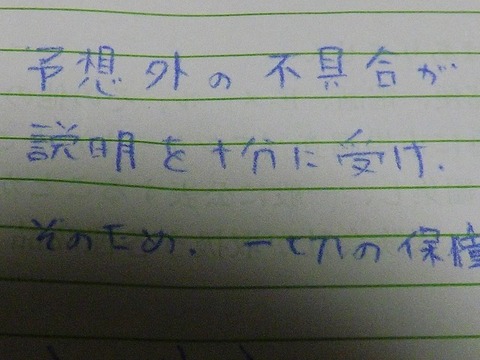 予想外の不具合が
説明を十分に受け.
そのため. 一切の保障